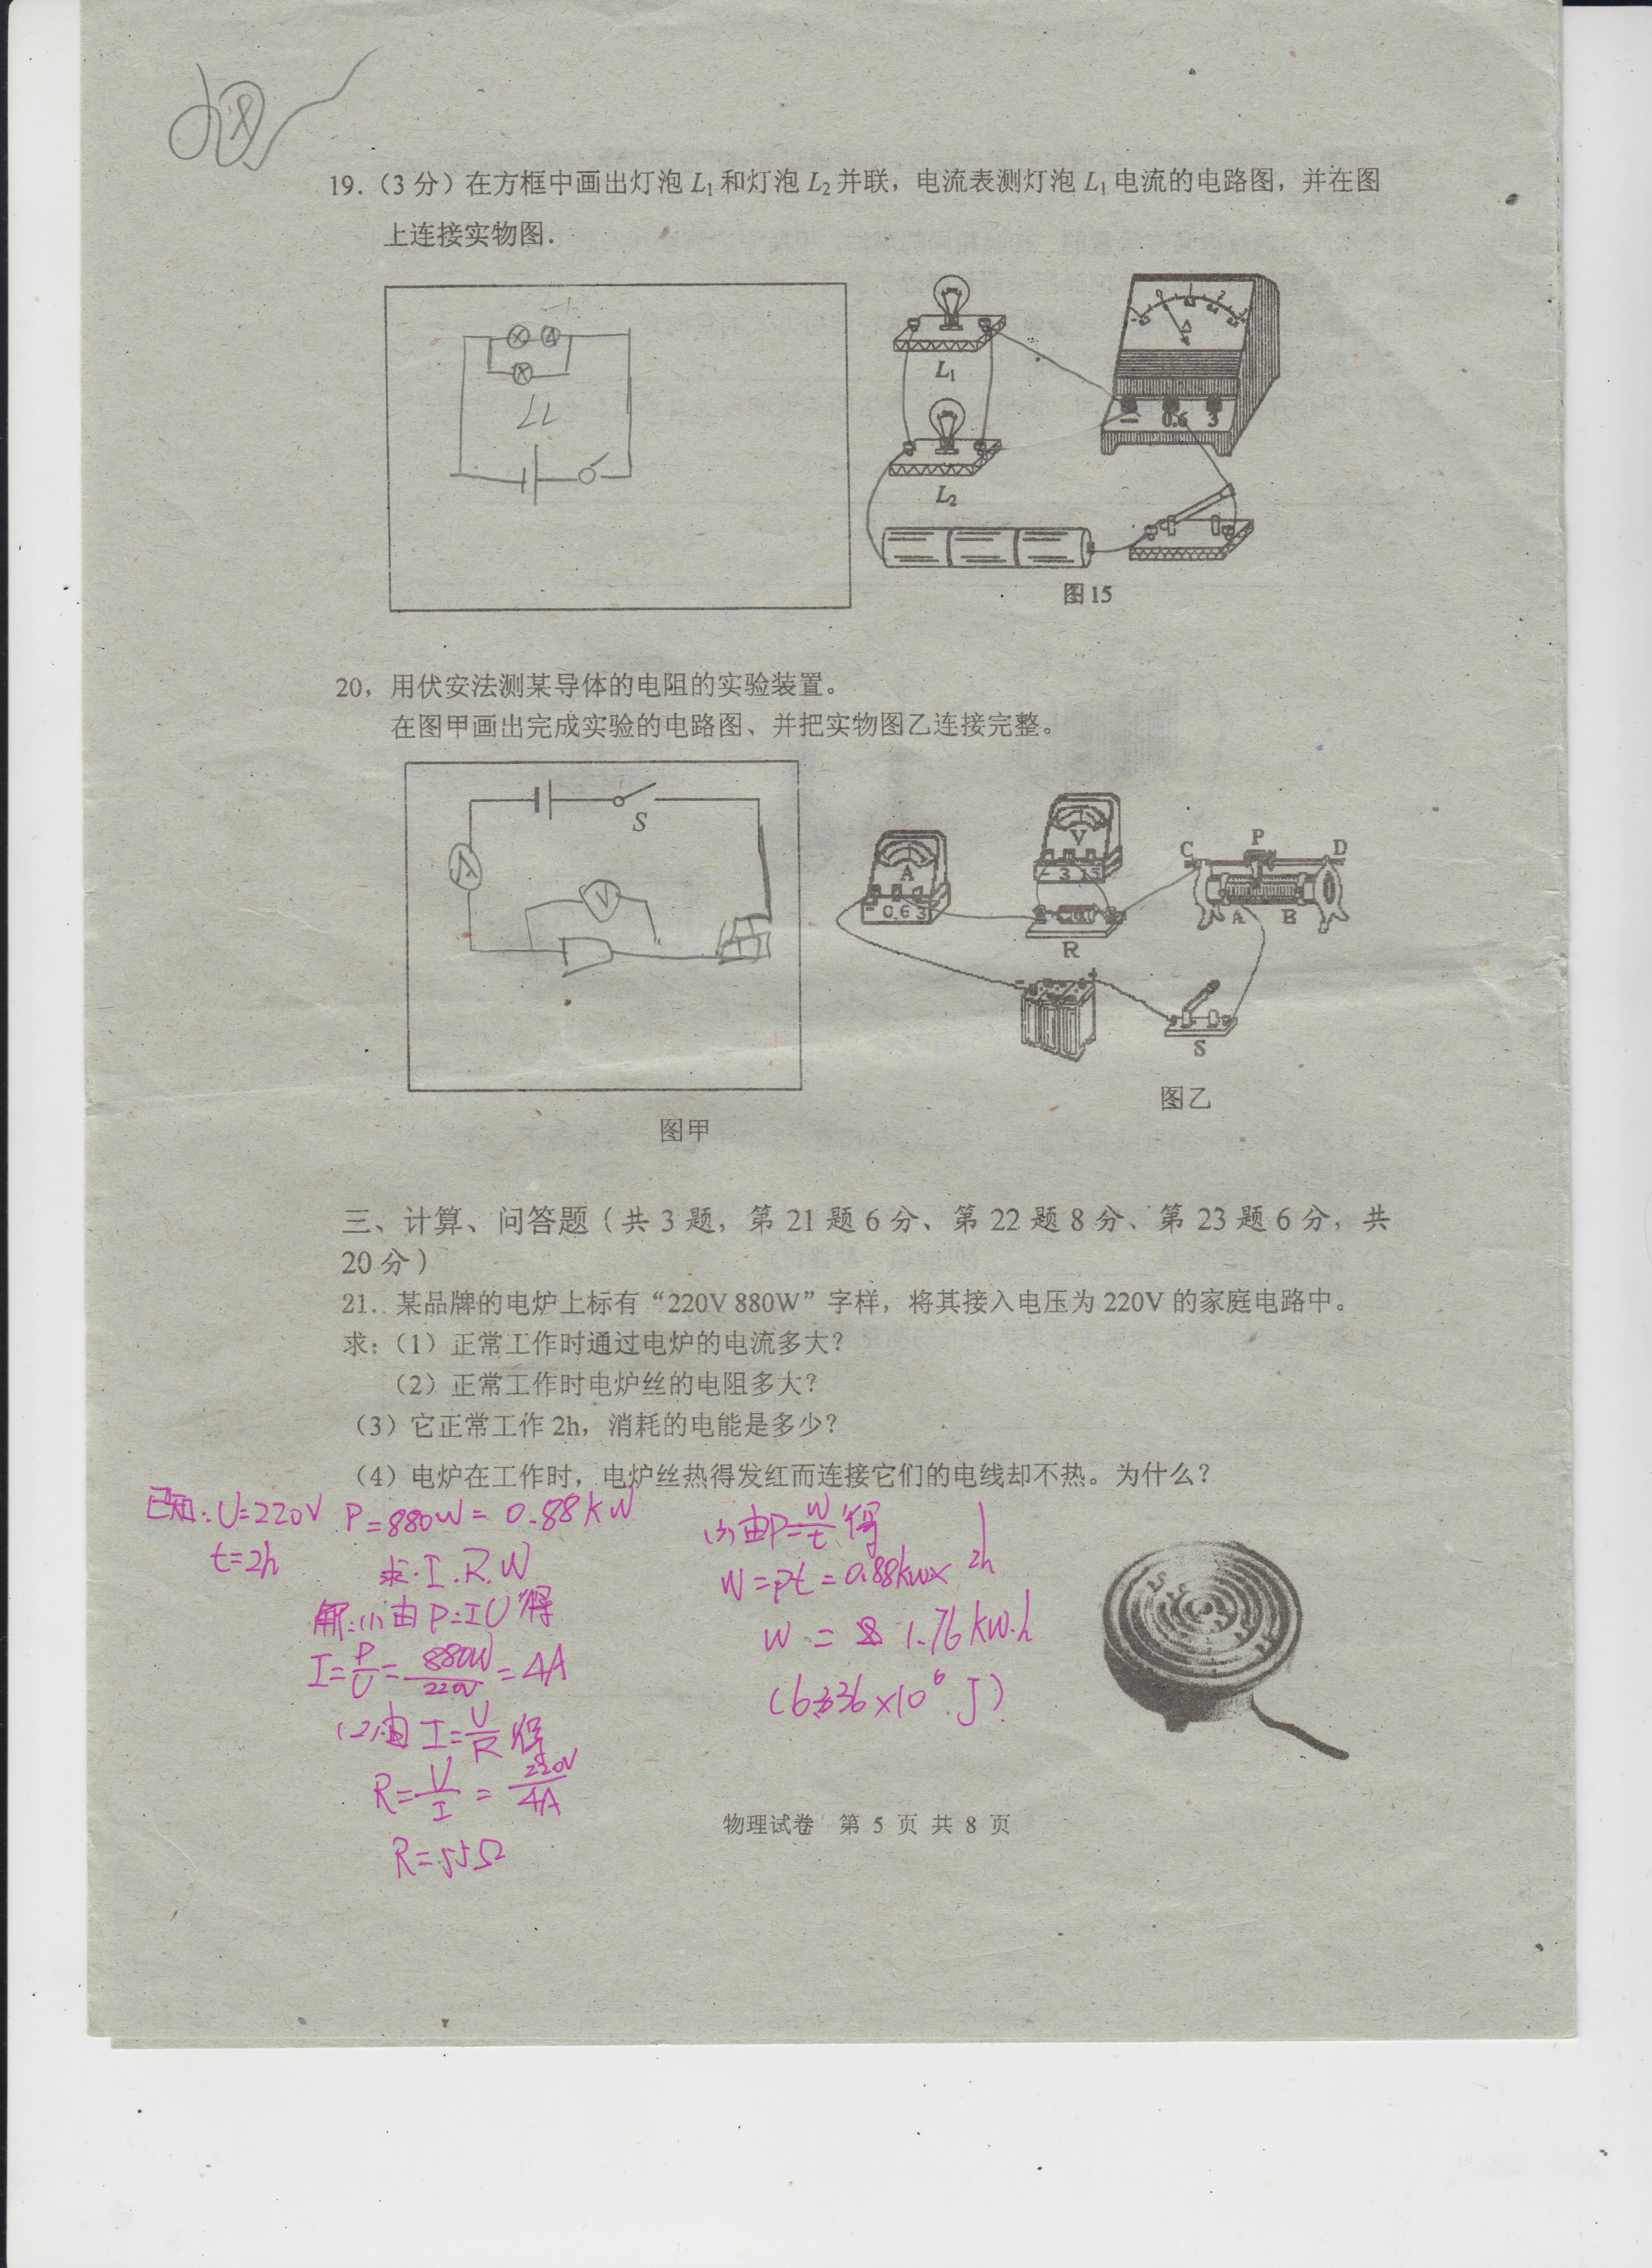 19.（3分）在方框中画出灯泡L₁和灯泡L₂并联，电流表测灯泡L₁电流的电路图，并在图
上连接实物图.
A
L₁
L₂
A
0 1 2
— 0.6 3
图15
20，用伏安法测某导体的电阻的实验装置。
在图甲画出完成实验的电路图、并把实物图乙连接完整。
S
A
V
图甲
A
- 0.6 3
V
- 3 15
R
C P D
A B
- +
S
图乙
三、计算、问答题（共3题，第21题6分、第22题8分、第23题6分，共
20分）
21. 某品牌的电炉上标有“220V 880W”字样，将其接入电压为220V的家庭电路中。
求：（1）正常工作时通过电炉的电流多大？
（2）正常工作时电炉丝的电阻多大？
（3）它正常工作2h，消耗的电能是多少？
（4）电炉在工作时，电炉丝热得发红而连接它们的电线却不热。为什么？
已知：U=220V P=880W=0.88kW
t=2h
求.I.R.W
解:(1)由P=IU得
I=P/U=880W/220V=4A
(2)由I=U/R得
R=U/I=220V/4A
R=55Ω
(3)由P=W/t得
W=Pt=0.88kW×2h
W=1.76kW.h
(6.336×10⁶J)
物理试卷 第 5 页 共 8 页